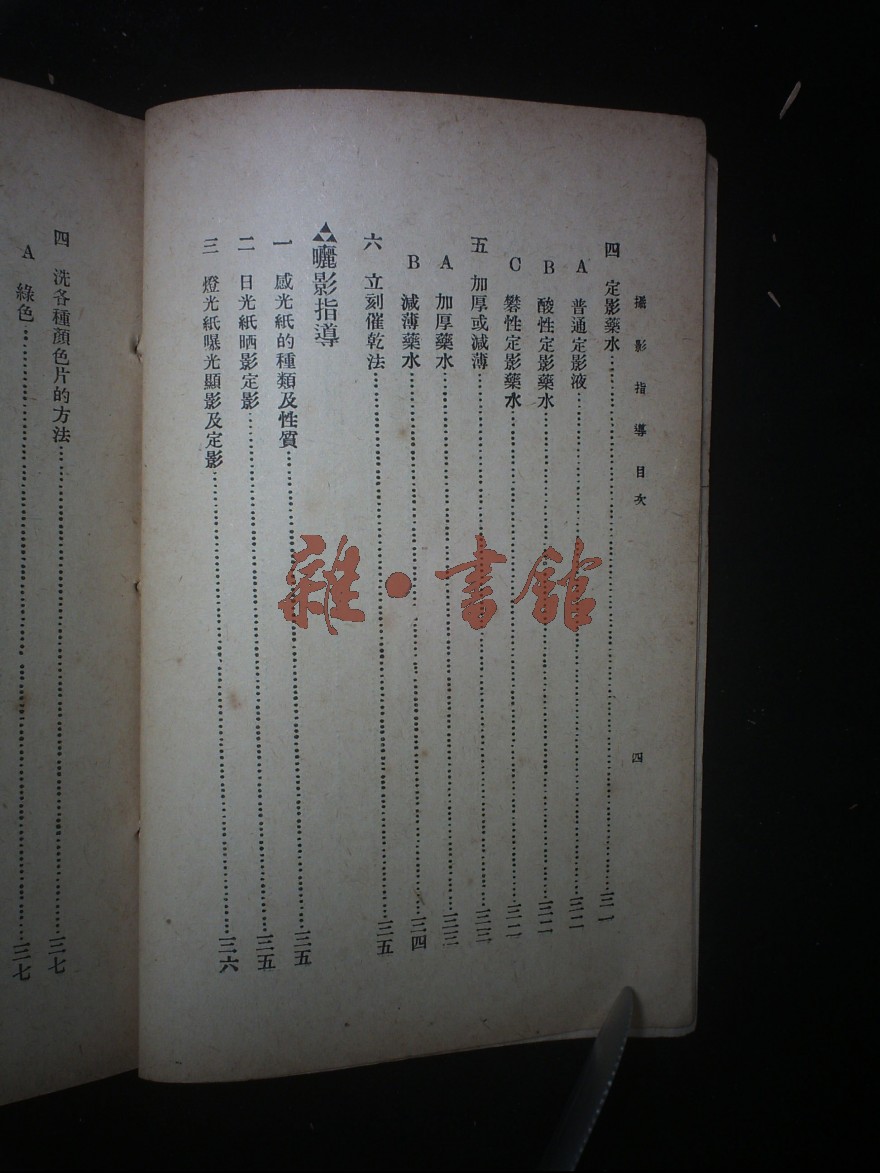 攝影指導目次
四
四 定影藥水……三一
A 普通定影液……三二
B 酸性定影藥水……三二
C 礬性定影藥水……三二
五 加厚或減薄……三三
A 加厚藥水……三三
B 減薄藥水……三四
六 立刻催乾法……三五
曬影指導
一 感光紙的種類及性質……三五
二 日光紙晒影定影……三五
三 燈光紙曝光顯影及定影……三六
四 洗各種顏色片的方法……三七
A 綠色……三七
雜·書館